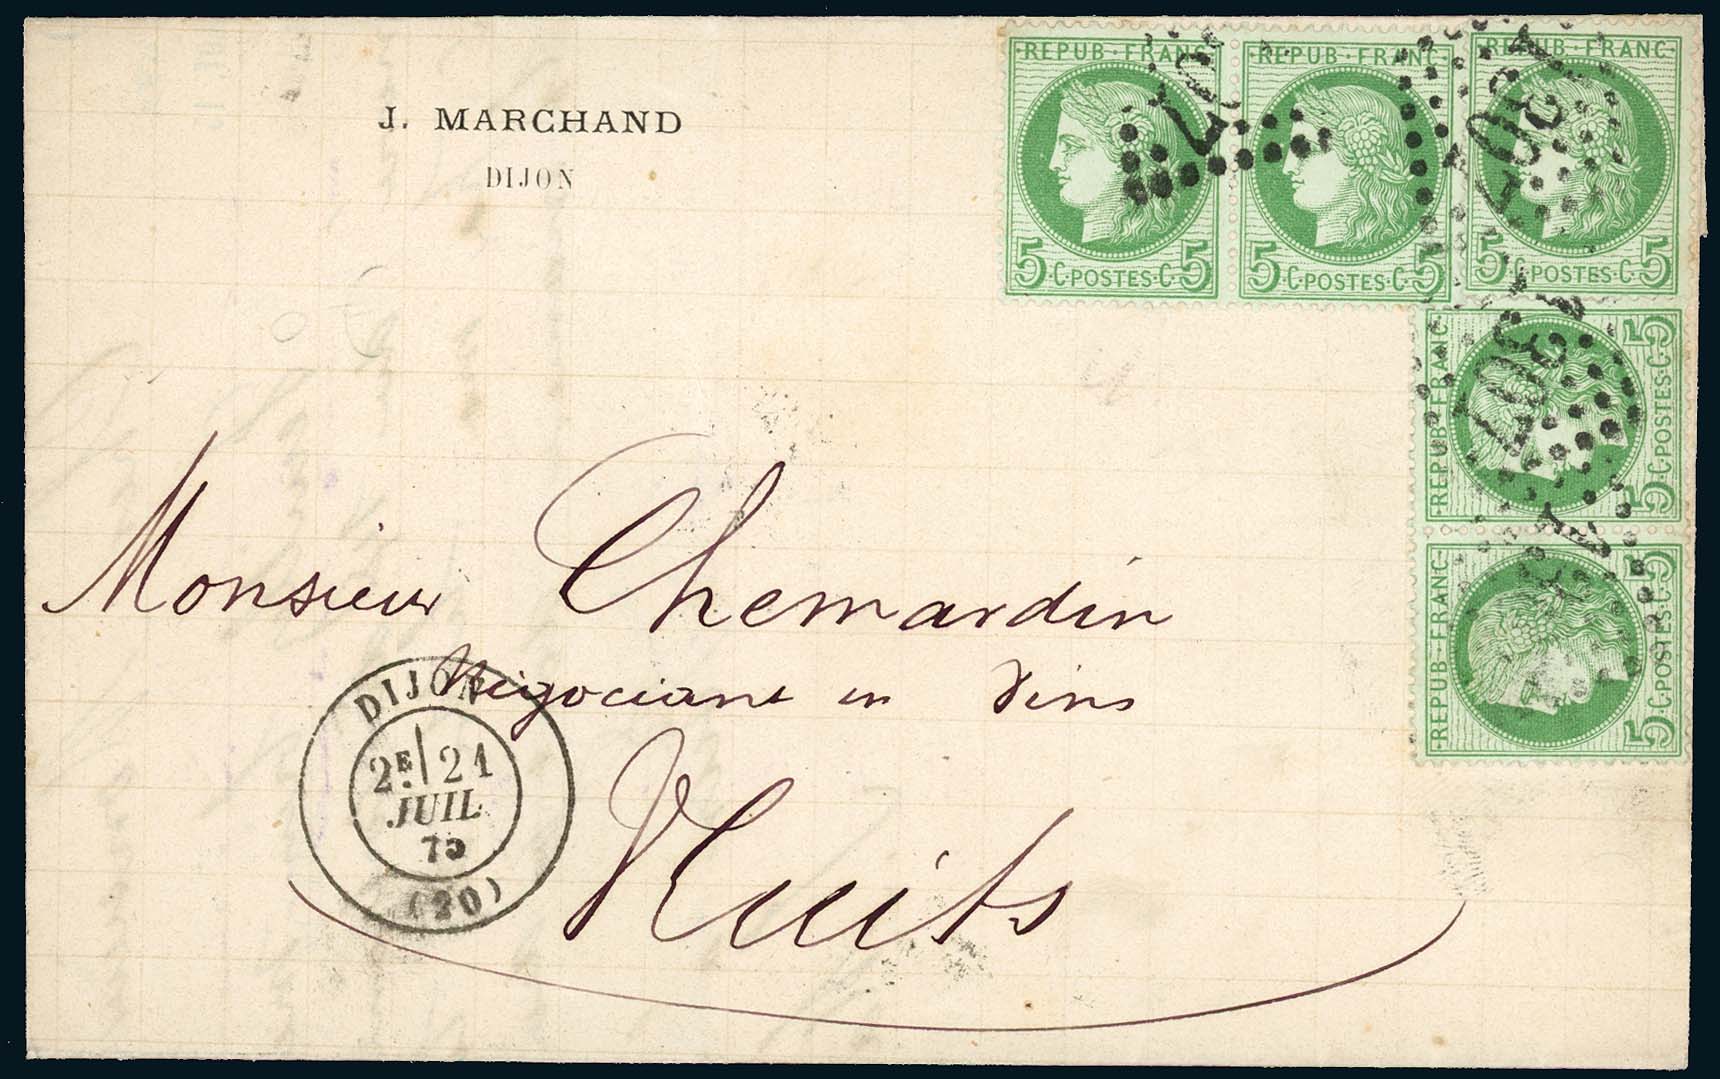 J. MARCHAND
DIJON
REPUB·FRANC
5·C·POSTES·C·5
REPUB·FRANC
5·C·POSTES·C·5
REPUB·FRANC·
5·C·POSTES·C·5
·REPUB·FRANC·
5·C·POSTES·C·5
·REPUB·FRANC·
5·C·POSTES·C·5
1307
1307
Monsieur Chemardin
Négociant en Vins
Nuits
DIJON
2E 21
JUIL
75
(20)